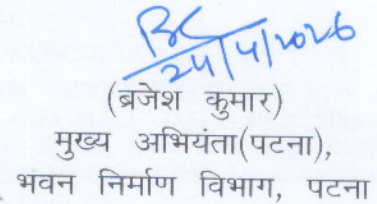 24/4/2026
(ब्रजेश कुमार)
मुख्य अभियंता(पटना),
भवन निर्माण विभाग, पटना